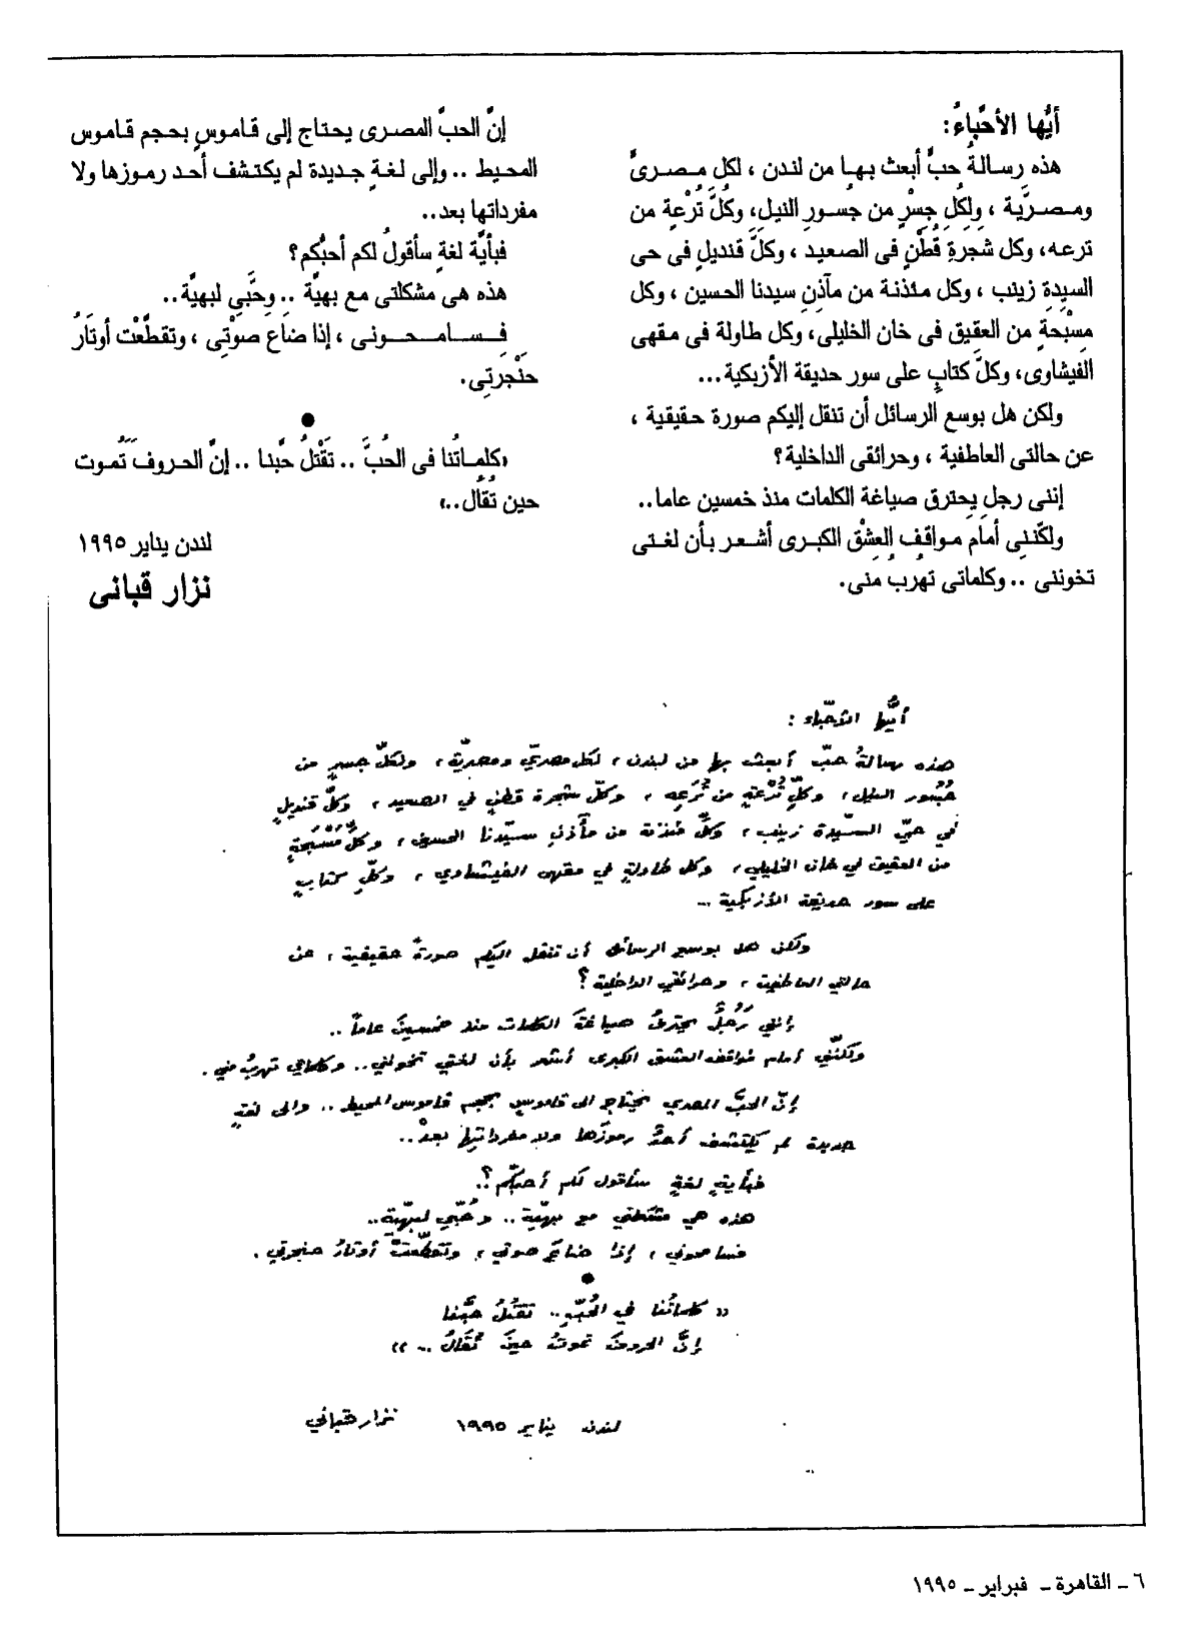 أيُّها الأحَّباءُ:
هذه رسالةُ حبٍّ أبعث بها من لندن ، لكل مصرىًّ
ومصرَّية ، ولكُلِ جِسْرٍ من جُسورِ النيلِ، وكُلَّ تُرْعةٍ من
ترعه، وكل شجرةِ قُطْنٍ فى الصعيد ، وكلَّ قنديلٍ فى حى
السيدةِ زينب ، وكل مئذنة من مآذنِ سيدنا الحسين ، وكل
مسْبَحةٍ من العقيق فى خان الخليلى، وكل طاولة فى مقهى
الفيشاوى، وكلَّ كتابٍ على سور حديقة الأزبكية...
ولكن هل بوسع الرسائل أن تنقل إليكم صورة حقيقية ،
عن حالتى العاطفية ، وحرائقى الداخلية؟
إننى رجل يحترق صياغة الكلمات منذ خمسين عاما..
ولكّننِى أمامَ مواقفِ العِشْق الكبرى أشعر بأن لغتى
تخوننى .. وكلماتى تهربُ منى.
إنَّ الحبَّ المصرى يحتاج إلى قاموسٍ بحجم قاموس
المحيط .. وإلى لغةٍ جديدة لم يكتشف أحد رموزها ولا
مفرداتها بعد..
فبأيَّة لغةٍ سأقولُ لكم أحبُّكم؟
هذه هى مشكلتى مع بهيَّة .. وحَّبىِ لبهيَّة..
فسامحونى ، إذا ضاع صوْتِى ، وتقطَّعْت أوتَارُ
حَنْجرَتِى.
●
«كلماتُنا فى الحُبَّ .. تَقْتلُ حَّبنا .. إنَّ الحروفَ تَموت
حين تُقَال..»
لندن يناير ١٩٩٥
نزار قبانى
أيُّها الأحبّاء :
هذه رسالةُ حبّ أبعث بها من لندن ، لكل مصريّ ومصريّة ، ولكلّ جسرٍ من
جُسُور النيل ، وكلِّ تُرْعةٍ من تُرَعِه ، وكلّ شجرة قطنٍ في الصعيد ، وكلّ قنديلٍ
في حيّ السيّدة زينب ، وكلّ مئذنة من مآذنِ سيّدنا الحسين ، وكلّ مَسْبَحةٍ
من العقيق في خان الخليلي ، وكل طاولةٍ في مقهى الفيشاوي ، وكلّ كتابٍ
على سور حديقة الأزبكية ...
ولكن هل بوسع الرسائل أن تنقل اليكم صورةً حقيقية ، عن
حالتي العاطفية ، وحرائقي الداخلية ؟
إنني رَجُلٌ يحترفُ صياغةَ الكلمات منذ خمسينَ عاماً ..
ولكنّني أمام مواقف العشق الكبرى أشعر بأن لغتي تخونني .. وكلماتي تهربُ مني .
إنّ الحبَّ المصري يحتاج الى قاموسٍ بحجم قاموس المحيط .. والى لغةٍ
جديدة لم يكتشف أحدٌ رموزَها ولا مفرداتِها بعدْ ..
فبأيةِ لغةٍ سأقول لكم أحبّكم ؟..
هذه هي مشكلتي مع بهيّة .. وحُبّي لبهيّة ..
فسامحوني ، إذا ضاعَ صوتي ، وتقطّعتْ أوتارُ حنجرتي .
●
« كلماتُنا في الحُبِّ .. تقتُلُ حبَّنا
إنَّ الحروفَ تموتُ حينَ تُقَالُ .. »
لندن يناير ١٩٩٥ نزار قباني
٦ ـ القاهرة ـ فبراير ـ ١٩٩٥